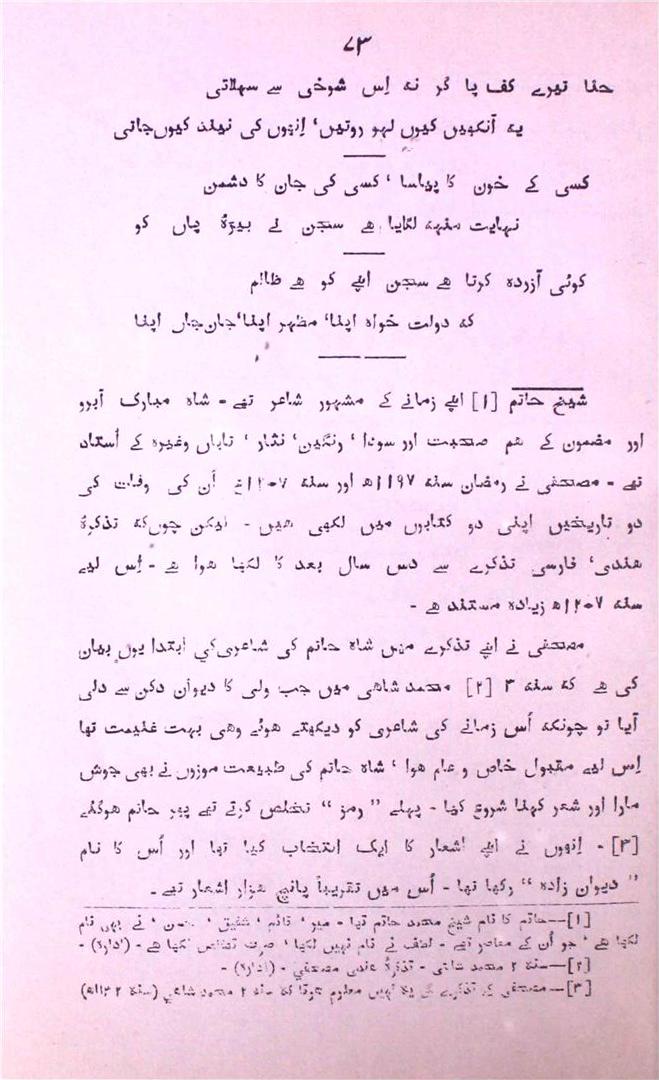 ۷۳
حنا تیرے کف پا گر نہ اِس شوخی سے سہلاتی
یہ آنکھیں کیوں لہو روتیں، اِنہوں کی نیند کیوں جاتی
کسی کے خون کا پیاسا، کسی کی جان کا دشمن
نہایت منہہ لگایا ھے سجن نے بیڑۂ پاں کو
کوئی آزردہ کرتا ھے سجن اپنے کو ھے ظالم
کہ دولت خواہ اپنا، مظہر اپنا، جان جاں اپنا
شیخ حاتم [۱] اپنے زمانے کے مشہور شاعر تھے - شاہ مبارک آبرو
اور مضمون کے ھم صحبت اور سودا، رنگین، نثار، تاباں وغیرہ کے اُستاد
تھے - مصحفی نے رمضان سنہ ۱۱۹۷ھ اور سنہ ۱۲۰۷ع اُن کی وفات کی
دو تاریخیں اپنی دو کتابوں میں لکھی ھیں - لیکن چوں کہ تذکرۂ
ھندی، فارسی تذکرے سے دس سال بعد کا لکھا ھوا ھے - اِس لیے
سنہ ۱۲۰۷ھ زیادہ مستند ھے -
مصحفی نے اپنے تذکرے میں شاہ حاتم کی شاعری کي ابتدا یوں بیان
کی ھے کہ سنہ ۳ [۲] محمد شاھی میں جب ولی کا دیوان دکن سے دلی
آیا تو چونکہ اُس زمانے کی شاعری کو دیکھتے ھوئے وھی بہت غنیمت تھا
اِس لیے مقبول خاص و عام ھوا، شاہ حاتم کی طبیعت موزوں نے بھی جوش
مارا اور شعر کہنا شروع کیا - پہلے ”رمز“ تخلص کرتے تھے پھر حاتم ھوگئے
[۳] - اِنہوں نے اپنے اشعار کا ایک انتخاب کیا تھا اور اُس کا نام
”دیوان زادہ“ رکھا تھا - اُس میں تقریباً پانچ ھزار اشعار تھے -
[۱]—حاتم کا نام شیخ محمد حاتم تھا - میر، قائم، شفیق، حسن، نے بھی نام
لکھا ھے، جو اُن کے معاصر تھے - لطف نے نام نہیں لکھا، صرف تخلص لکھا ھے - (ادارہ) -
[۲]—سنہ ۲ محمد شاھی - تذکرۂ ھندی مصحفي - (ادارہ) -
[۳]—مصحفی کے تذکرے سے یہ نہیں معلوم ھوتا کہ سنہ ۲ محمد شاھي (سنہ ۱۱۳۲ھ)